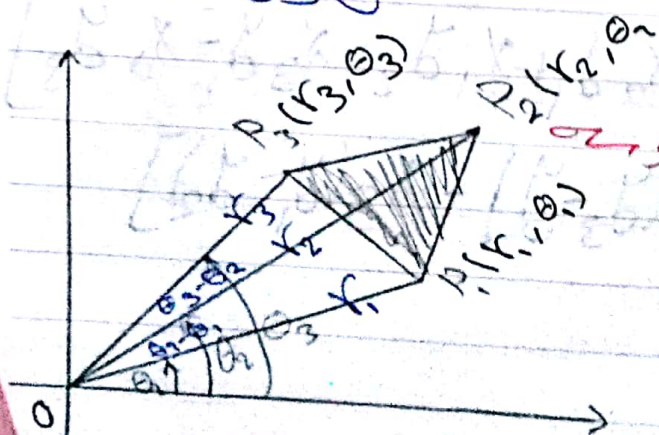 P₃(r₃,θ₃)
P₂(r₂,θ₂
P₁(r₁,θ₁)
r₃
r₂
r₁
θ₃-θ₂
θ₂-θ₁
θ₁
θ₂
θ₃
O